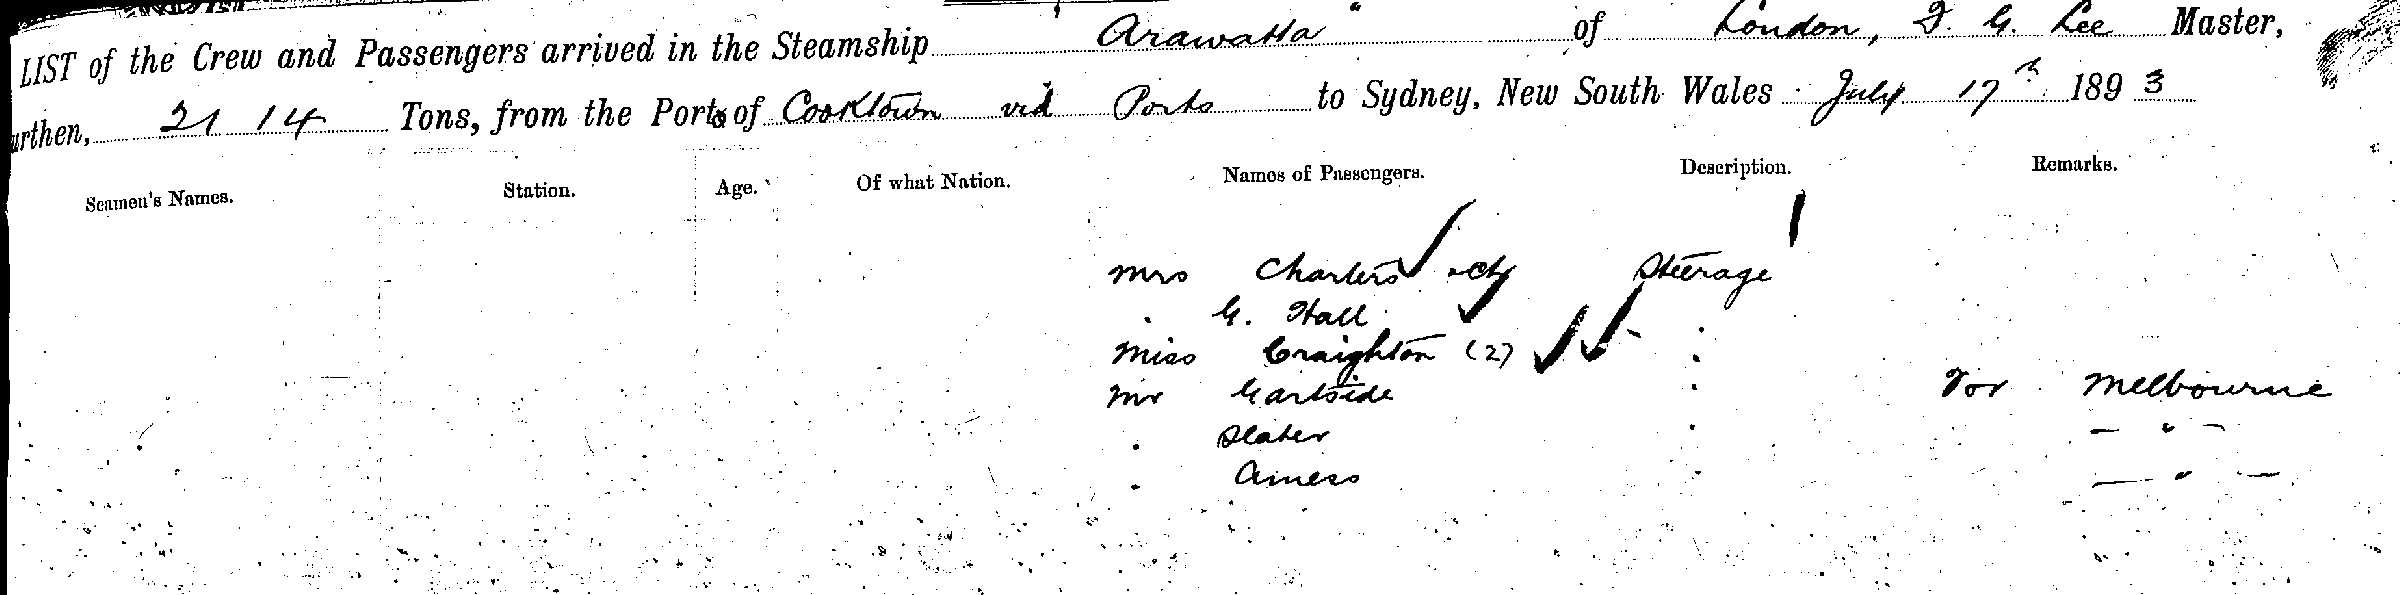 LIST of the Crew and Passengers arrived in the Steamship "Arawatta" of London, D. G. Lee Master,
urthen, 2114 Tons, from the Ports of Cooktown viâ Ports to Sydney, New South Wales July 17th 1893
Seamen's Names. Station. Age. Of what Nation. Names of Passengers. Description. Remarks.
Mrs Charters & ch Steerage
" G. Hall "
Miss Craighton (2) "
Mr Gartside " For Melbourne
" Slater " — " —
" Amess " — " —